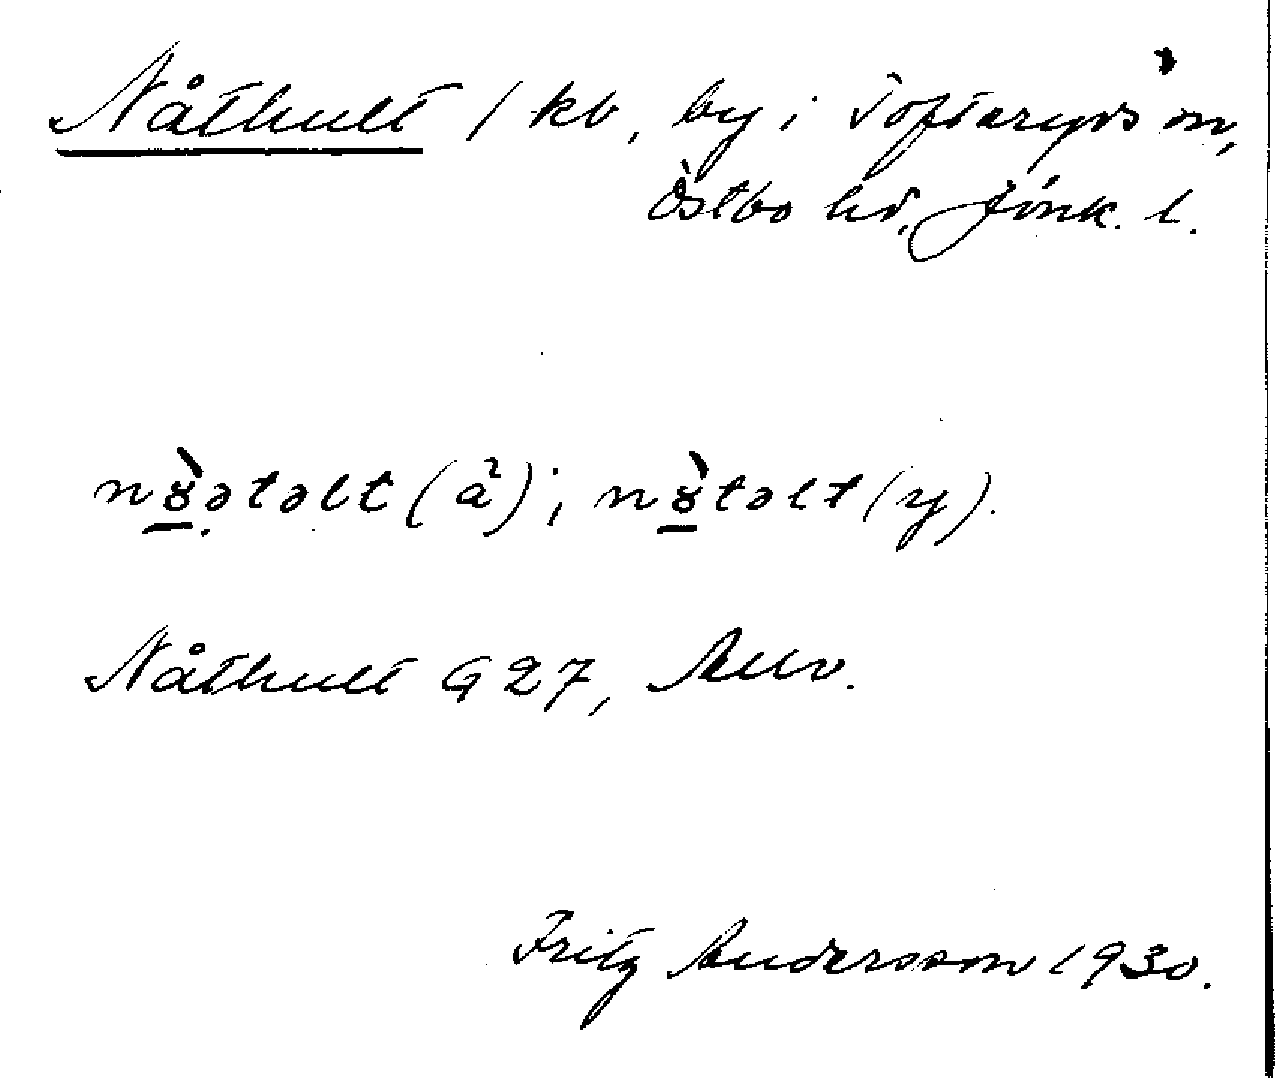 Nåthult / kb, by i Toftaryds sn,
Östbo hd, Jönk. l.
nȣ̠̀ətəlt (ä̀); nȣ̠̀təlt (y).
Nåthult G 27, Allv.
Fritz Andersson 1930.